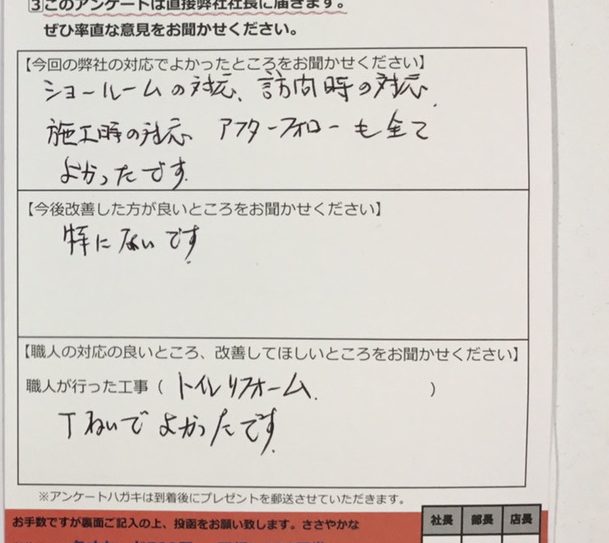 3このアンケートは直接弊社社長に届きます。
ぜひ率直な意見をお聞かせください。
【今回の弊社の対応でよかったところをお聞かせください】
ショールームの対応、訪問時の対応、
施工時の対応 アフターフォローも全て
よかったです。
【今後改善した方が良いところをお聞かせください】
特にないです
【職人の対応の良いところ、改善してほしいところをお聞かせください】
職人が行った工事（トイレリフォーム. ）
丁ねいでよかったです。
※アンケートハガキは到着後にプレゼントを郵送させていただきます。
お手数ですが裏面ご記入の上、投函をお願い致します。ささやかな
社長 部長 店長